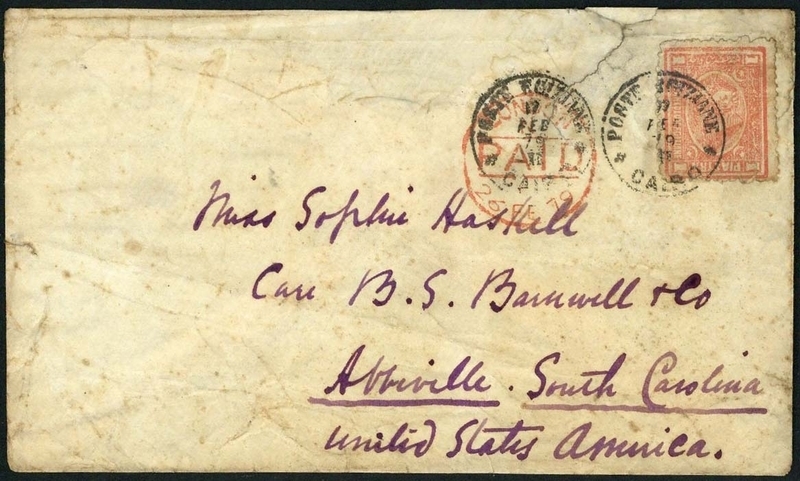 POSTE EGIZIANE
17
FEB
79
CAI
LONDON
PAID
26 FE 79
POSTE EGIZIANE
17
FEB
79
CAIRO
Miss Sophie Haskell
Care B. S. Barnwell & Co
Abbiville. South Carolina
United States America.